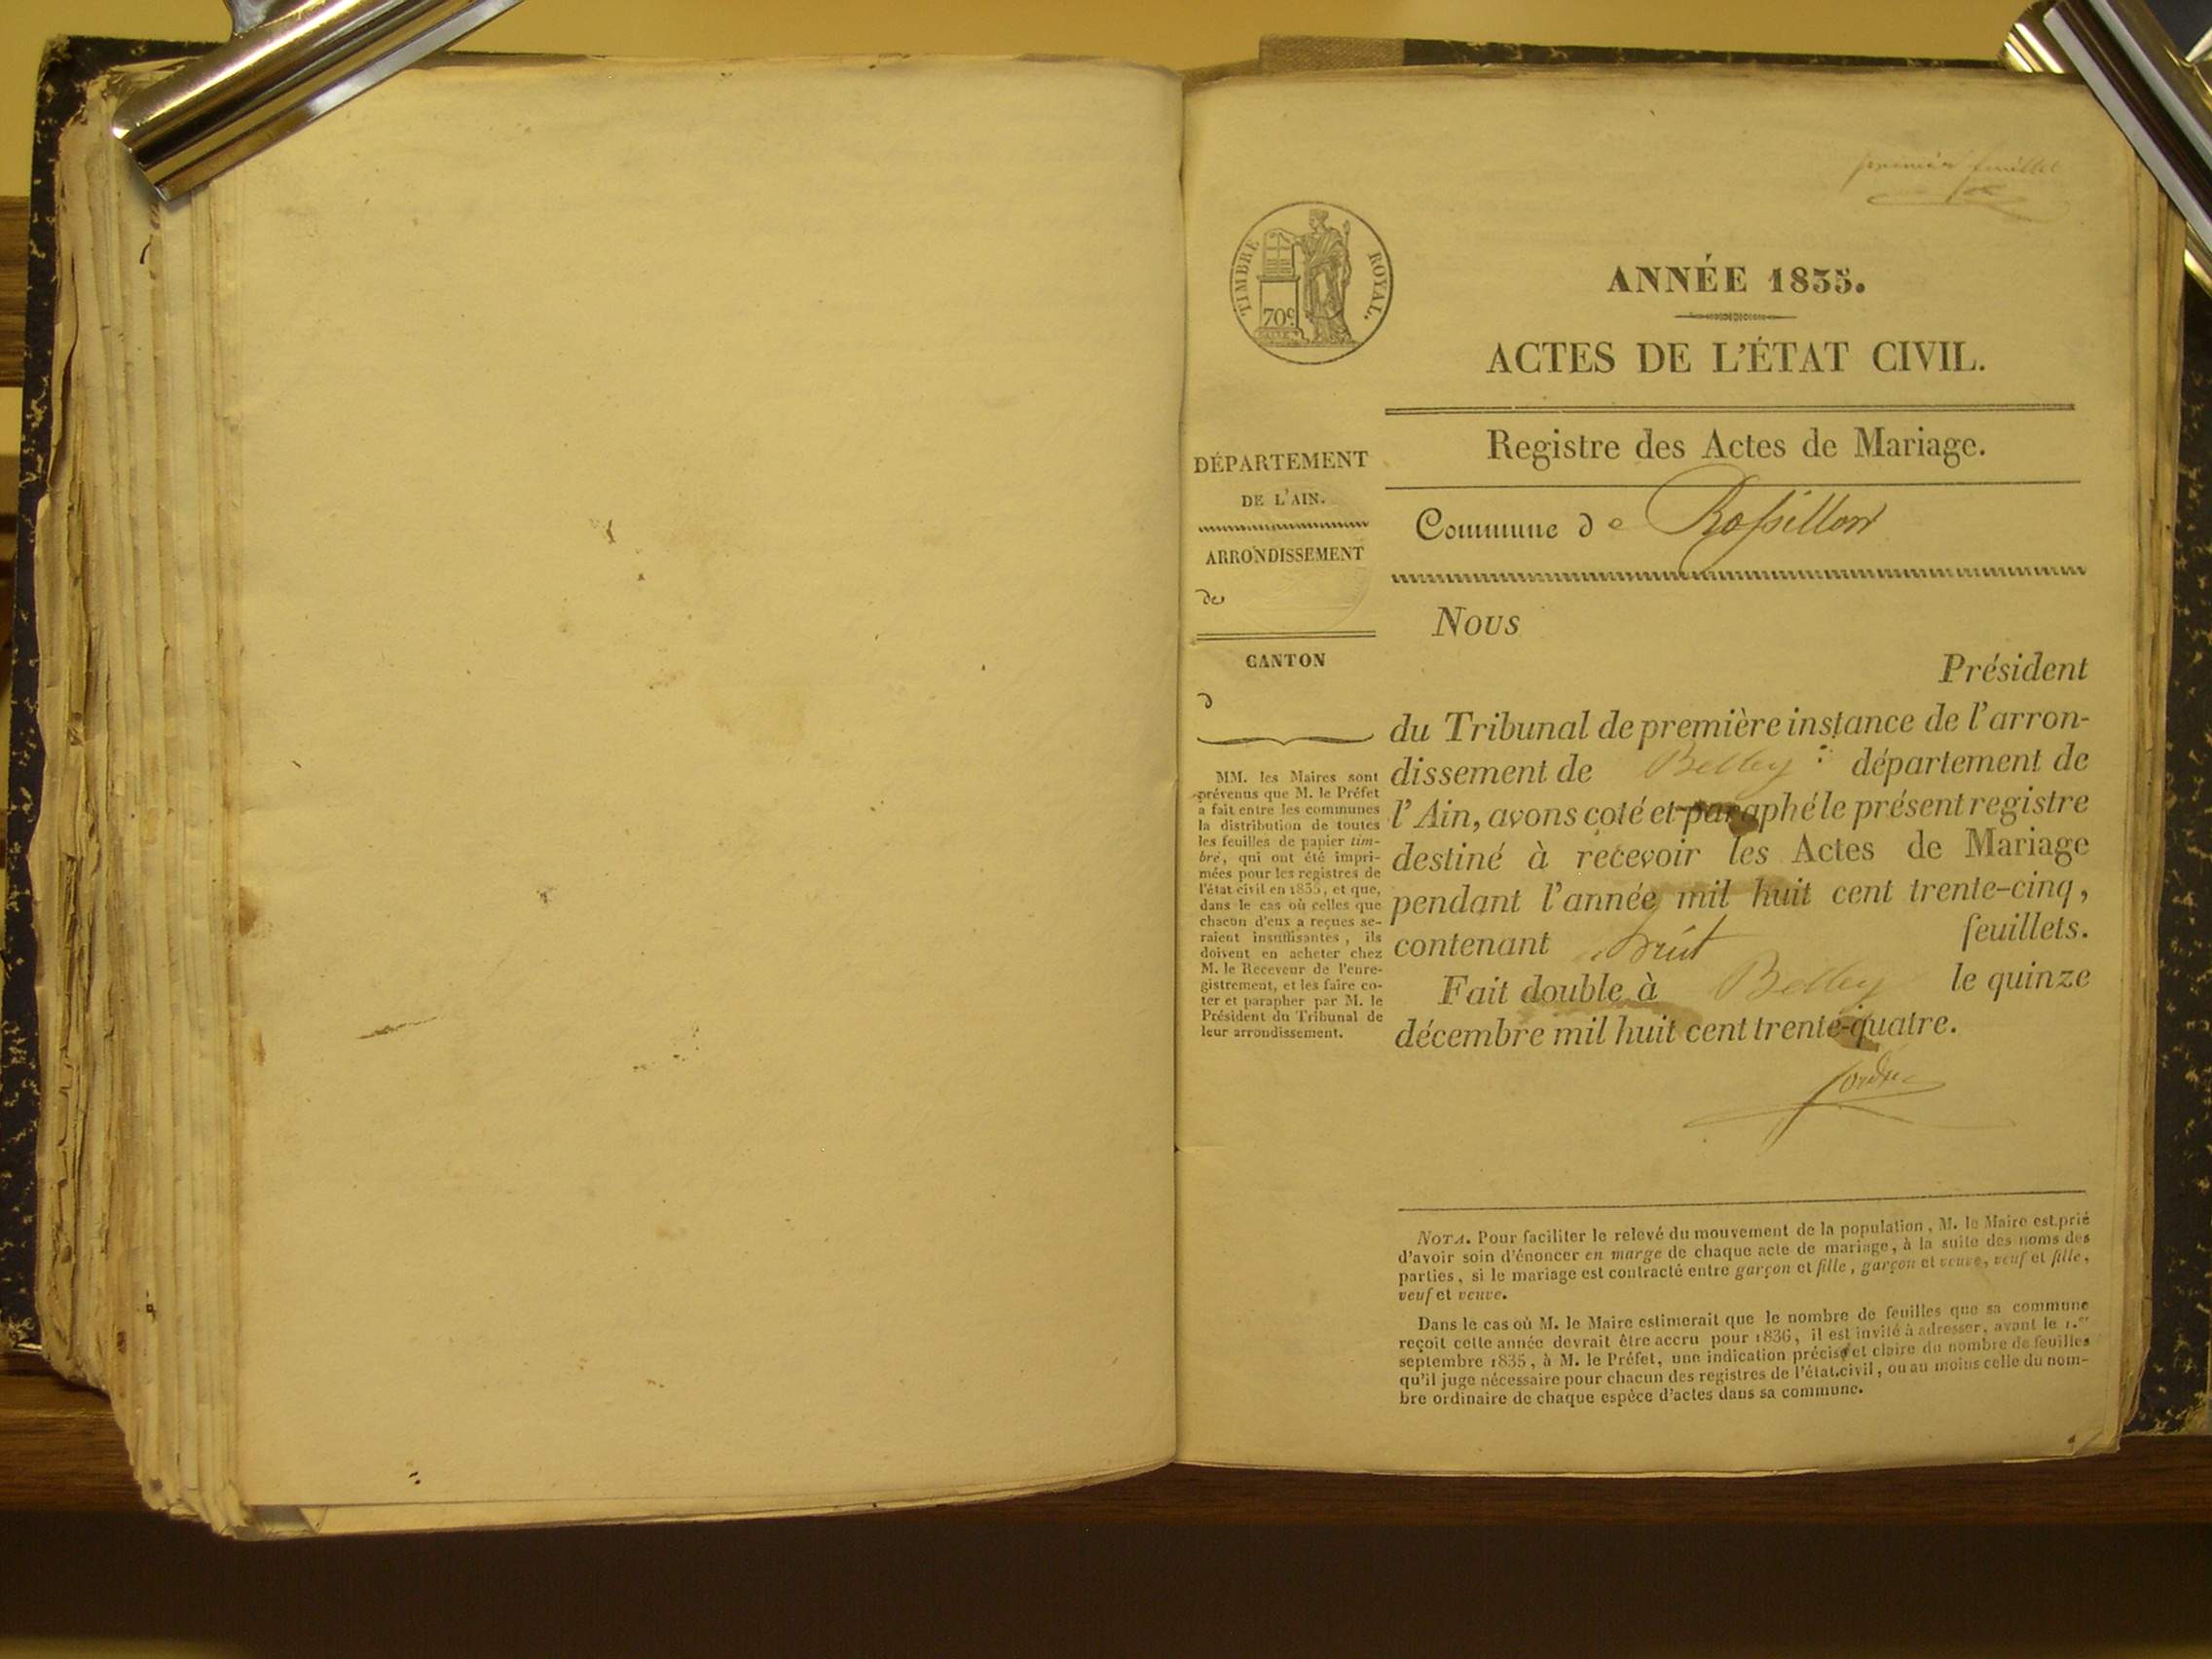 premier feuillet
TIMBRE ROYAL.
70c.
ANNÉE 1835.
ACTES DE L'ÉTAT CIVIL.
Registre des Actes de Mariage.
Commune de Rossillon
DÉPARTEMENT
DE L'AIN.
ARRONDISSEMENT
de
CANTON
d
MM. les Maires sont
prévenus que M. le Préfet
a fait entre les communes
la distribution de toutes
les feuilles de papier tim-
bré, qui ont été impri-
mées pour les registres de
l'état civil en 1835, et que,
dans le cas où celles que
chacun d'eux a reçues se-
raient insuffisantes, ils
doivent en acheter chez
M. le Receveur de l'enre-
gistrement, et les faire co-
ter et parapher par M. le
Président du Tribunal de
leur arrondissement.
Nous
Président
du Tribunal de première instance de l'arron-
dissement de Belley département de
l'Ain, avons coté et paraphé le présent registre
destiné à recevoir les Actes de Mariage
pendant l'année mil huit cent trente-cinq,
contenant feuillets.
Fait double à Belley le quinze
décembre mil huit cent trente-quatre.
NOTA. Pour faciliter le relevé du mouvement de la population, M. le Maire est prié
d'avoir soin d'énoncer en marge de chaque acte de mariage, à la suite des noms des
parties, si le mariage est contracté entre garçon et fille, garçon et veuve, veuf et fille,
veuf et veuve.
Dans le cas où M. le Maire estimerait que le nombre de feuilles que sa commune
reçoit cette année devrait être accru pour 1836, il est invité à adresser, avant le 1.er
septembre 1835, à M. le Préfet, une indication précise et claire du nombre de feuilles
qu'il juge nécessaire pour chacun des registres de l'état civil, ou au moins celle du nom-
bre ordinaire de chaque espèce d'actes dans sa commune.